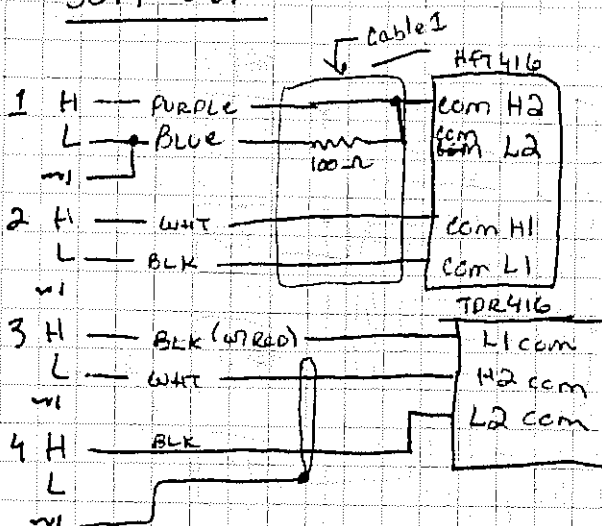 Cable 1
HFT416
1 H PURPLE com H2
L BLUE com L2
100 Ω
2 H WHT com H1
L BLK com L1
TDR416
3 H BLK (W/RED) L1 com
L WHT H2 com
L2 com
4 H BLK
L